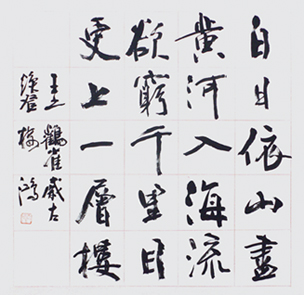 白日依山盡
黄河入海流
欲窮千里目
更上一層樓
王之
渙登
鸛雀
樓
鴻